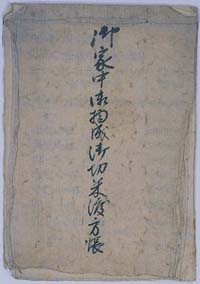 御家中御物成御切米渡方帳